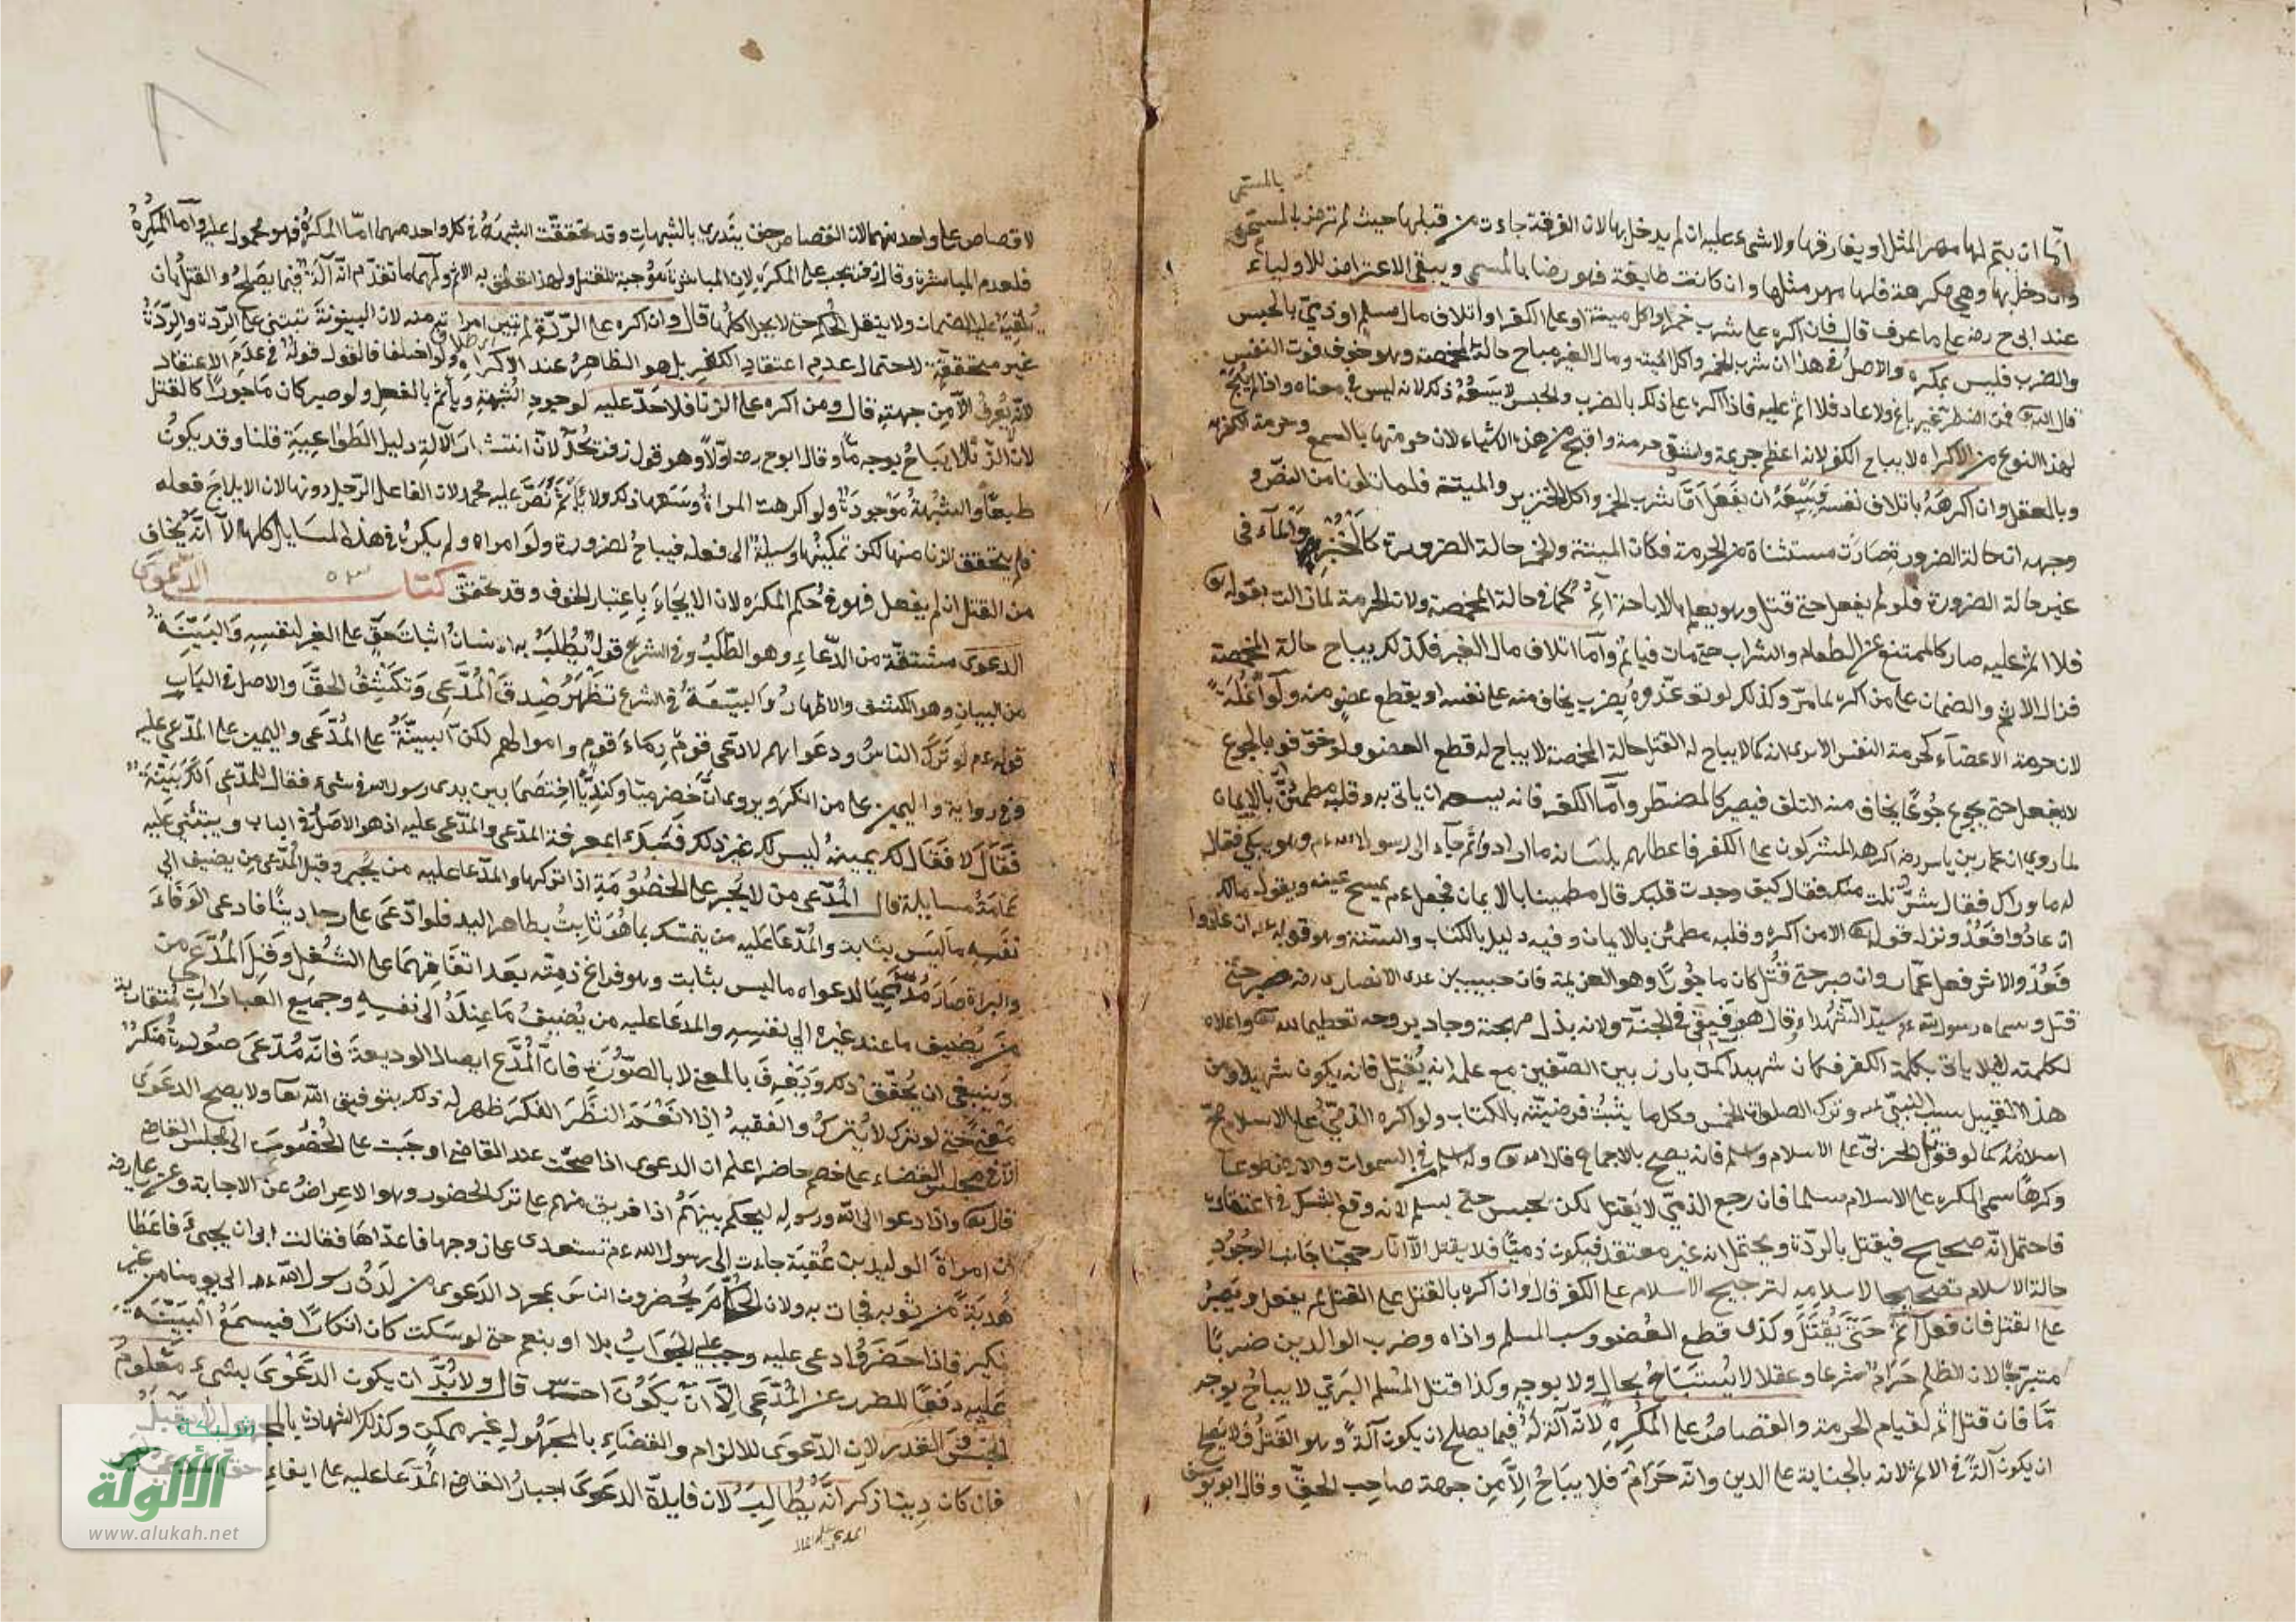 بالمسمى
اما ان يتم لها مهر المثل او يفارقها ولا شيء عليه ان لم يدخل بها لان الفرقة جاءت من قبلها حيث لم ترض بالمسمى
وان دخل بها وهي مكرهة فلها مهر مثلها وان كانت طايعة فهو رضا بالمسمى ويبقى الاعتراض للاولياء
عند ابي ح رضه على ما عرف قال فان اكره على شرب خمر او اكل ميتة او على الكفر او اتلاف مال مسلم او ذمي بالحبس
والضرب فليس بمكره والاصل في هذا ان شرب الخمر واكل الميته ومال الغير مباح حالة المخمصة وهو خوف فوت النفس
قال الله تع فمن اضطر غير باغ ولا عاد فلا اثم عليه فاذا اكره على ذلك بالضرب والحبس لا يسعه ذلك لانه ليس في معناه واذا لم يبح
لهذا النوع من الاكراه لا يباح الكفر لانه اعظم جريمة واشق حرمة واقبح من هذه الاشياء لان حرمتها بالسمع وحرمة الكفر به
وبالعقل وان اكرهه باتلاف نفسه يسعه ان يفعل اما شرب الخمر واكل الخنزير والميتة فلما تلونا من النص و
وجهه ان حالة الضرورة صارت مستثناة من الحرمة فكان الميتة والخمر حالة الضرورة كالخبز والماء في
غير حالة الضرورة فلو لم يفعل حتى قتل وهو يعلم بالاباحة اثم كما في حالة المخمصة ولان الحرمة لما زالت بقوله تع
فلا اثم عليه صار كالممتنع عن الطعام والشراب حتى مات فياثم واما اتلاف مال الغير فكذلك يباح حالة المخمصة
فزال الاثم والضمان على من اكره لما مر وكذلك لو توعدوه بضرب يخاف منه على نفسه او بقطع عضو منه ولو انملة
لان حرمة الاعضاء كحرمة النفس الا يرى انه كما لا يباح له القتل حالة المخمصة لا يباح له قطع العضو ولو خوفوه بالجوع
لا يفعل حتى يجوع جوعا يخاف منه التلف فيصير كالمضطر واما الكفر فانه يسعه ان ياتي به وقلبه مطمئن بالايمان
لما روي ان عمار بن ياسر رضه اكرهه المشركون على الكفر فاعطاهم بلسانه ما ارادوا ثم جاء الى رسول الله عم وهو يبكي فقال
له ما وراك فقال شر نلت منك فقال كيف وجدت قلبك قال مطمينا بالايمان فجعل عم يمسح عينه ويقول مالك
ان عادوا فعد ونزل قوله تع الا من اكره وقلبه مطمئن بالايمان وفيه دليل بالكتاب والسنة وهو قوله عم ان عادوا
فعد والاثر فعل عمار وان صبر حتى قتل كان ماجورا وهو العزيمة فان خبيب بن عدى الانصاري رضه صبر حتى
قتل وسماه رسول الله عم سيد الشهداء وقال هو رفيقي في الجنة ولانه بذل مهجته وجاد بروحه تعظيما لله تع واعلاء
لكلمته ليلا ياتي بكلمة الكفر فكان شهيدا كمن بارز بين الصفين مع علمه انه يقتل فانه يكون شهيدا ومن
هذا القبيل سب النبي عم وترك الصلوة الخمس وكل ما يثبت فرضيته بالكتاب ولو اكره الذمي على الاسلام صح
اسلامه كما لو قوتل الحربي على الاسلام واسلم فانه يصح بالاجماع قال الله تع وله اسلم من في السموات والارض طوعا
وكرها سمى المكره على الاسلام مسلما فان رجع الذمي لا يقتل لكن يحبس حتى يسلم لانه وقع الشك في اعتقاده
فاحتمل انه صحيح فيقتل بالردة ويحتمل انه غير معتقد فيكون ذميا فلا يقتل الا انا رجحنا جانب الوجود
حالة الاسلام تصحيحا لاسلامه لترجيح الاسلام على الكفر قال وان اكره بالقتل على القتل لم يفعل ويصبر
على القتل فان فعل اثم حتى يقتل وكذى قطع العضو وسب المسلم واذاه وضرب الوالدين ضربا
مبرحا لان الظلم حرام شرعا وعقلا لا يستباح بحال ولا بوجه وكذا قتل المسلم البري لا يباح بوجه
ما فان قتل اثم لقيام الحرمة والقصاص على المكره لانه آلة له فيما يصلح ان يكون آلة وهو القتل ولا يصلح
ان يكون آلة في الاثم لانه بالجناية على الدين وانه حرام فلا يباح الا من جهة صاحب الحق وقال ابو يوسف
لا قصاص على واحد منهما لان القصاص حق يندرى بالشبهات وقد تحققت الشبهة في كل واحد منهما اما المكره فهو محمول عليه واما المكره
فلعدم المباشرة وقال زفر يجب على المكره لان المباشرة موجبة للقتل ولهذا تعلق به الاثم ولهما ما تقدم انه آلة فيما يصلح والقتل بان
يلقيه عليه الضمان ولا ينقل الحكم حتى لا يحل اكلها قال وان اكره على الردة لم تبن امراته منه لان البينونة تبتنى على الردة والردة
غير متحققة لاحتمال عدم اعتقاد الكفر بل هو الظاهر عند الاكراه ولو اختلفا فالقول قوله في عدم الاعتقاد
لانه لا يعرف الا من جهته قال ومن اكره على الزنا فلا حد عليه لوجود الشبهة وياثم بالفعل ولو صبر كان ماجورا كالقتل
لان الزنا لا يباح بوجه ما وقال ابو ح رضه اولا وهو قول زفر يحد لان انتشار الآلة دليل الطواعية قلنا وقد يكون
طبعا والشبهة موجودة ولو اكرهت المراة وسعها ذلك ولا تاثم نص عليه محمد لان الفاعل الرجل دونها لان الايلاج فعله
فلم يتحقق الزنا منها لكن تمكينها وسيلة الى فعله فيباح لضرورة ولو امراه ولم يكره في هذه المسايل كلها الا انه يخاف
من القتل ان لم يفعل فهو في حكم المكره لان الايجاء باعتبار الخوف وقد تحقق كتاب الدعوى
الدعوى مشتقة من الدعاء وهو الطلب وفي الشرع قول يطلب به انسان اثبات حق على الغير لنفسه والبينة
من البيان وهو الكشف والاظهار والبينة في الشرع تظهر صدق المدعى وتكشف الحق والاصل في الباب
قوله عم لو ترك الناس ودعواهم لادعى قوم دماء قوم واموالهم لكن البينة على المدعى واليمين على المدعى عليه
وفي رواية واليمين على من انكر ويروى ان حضرميا وكنديا اختصما بين يدى رسول الله في شيء فقال للمدعى الك بينة
فقال لا فقال لك يمينه ليس لك غير ذلك فنبدء بمعرفة المدعى والمدعى عليه اذ هو الاصل في الباب ويبتني عليه
عامة مسايله قال المدعى من لا يجبر على الخصومة اذا تركها والمدعا عليه من يجبر وقيل المدعى من يضيف الى
نفسه ما ليس بثابت والمدعا عليه من يتمسك بما هو ثابت بظاهر اليد فلو ادعى على رجل دينا فادعى الوفاء
والبراة صار مدعيا لدعواه ما ليس بثابت وهو فراغ ذمته بعد اتفاقهما على الشغل وقيل المدعى من
من يضيف ما عند غيره الى نفسه والمدعا عليه من يضيف ما عنده الى نفسه وجميع العبارات متقاربة
وينبغي ان يحقق ذلك ويعرف بالمعنى لا بالصورة فان المودع ايصال الوديعة فانه مدعى صورة منكر
معنى حتى لو ترك لا يترك والفقيه اذا انعم النظر الفكر ظهر له ذلك بتوفيق الله تعا ولا يصح الدعوى
الا في مجلس القضاء على خصم حاضر اعلم ان الدعوى اذا صحت عند القاضي اوجبت على الخصوم الى مجلس القاضي
قال تع واذا دعوا الى الله ورسوله ليحكم بينهم اذا فريق منهم على ترك الحضور وهو الاعراض عن الاجابة وعن علي رضه
ان امراة الوليد بن عقبة جاءت الى رسول الله عم تستعدى على زوجها فاعداها فقالت ابى ان يجيء فاعطا
هدبة من ثوبه فجات به ولان الحكام يحضرون الناس بمجرد الدعوى من لدن رسول الله عم الى يومنا من غير
نكير فاذا حضر وادعى عليه وجب عليه الجواب بلا او بنعم حتى لو سكت كان انكارا فيسمع البينة
عليه دفعا للضرر عن المدعى الا ان يكون اخرس قال ولابد ان يكون الدعوى بشيء معلوم
الجنس والقدر لان الدعوى للالزام والقضاء بالمجهول غير ممكن وكذلك الشهادة بالمجهول لا يقبل
فان كان دينا ذكر انه يطالبه لان فايدة الدعوى اجبار القاضي المدعا عليه على ايفاء حق المدعى
شبكة
الألوكة
www.alukah.net